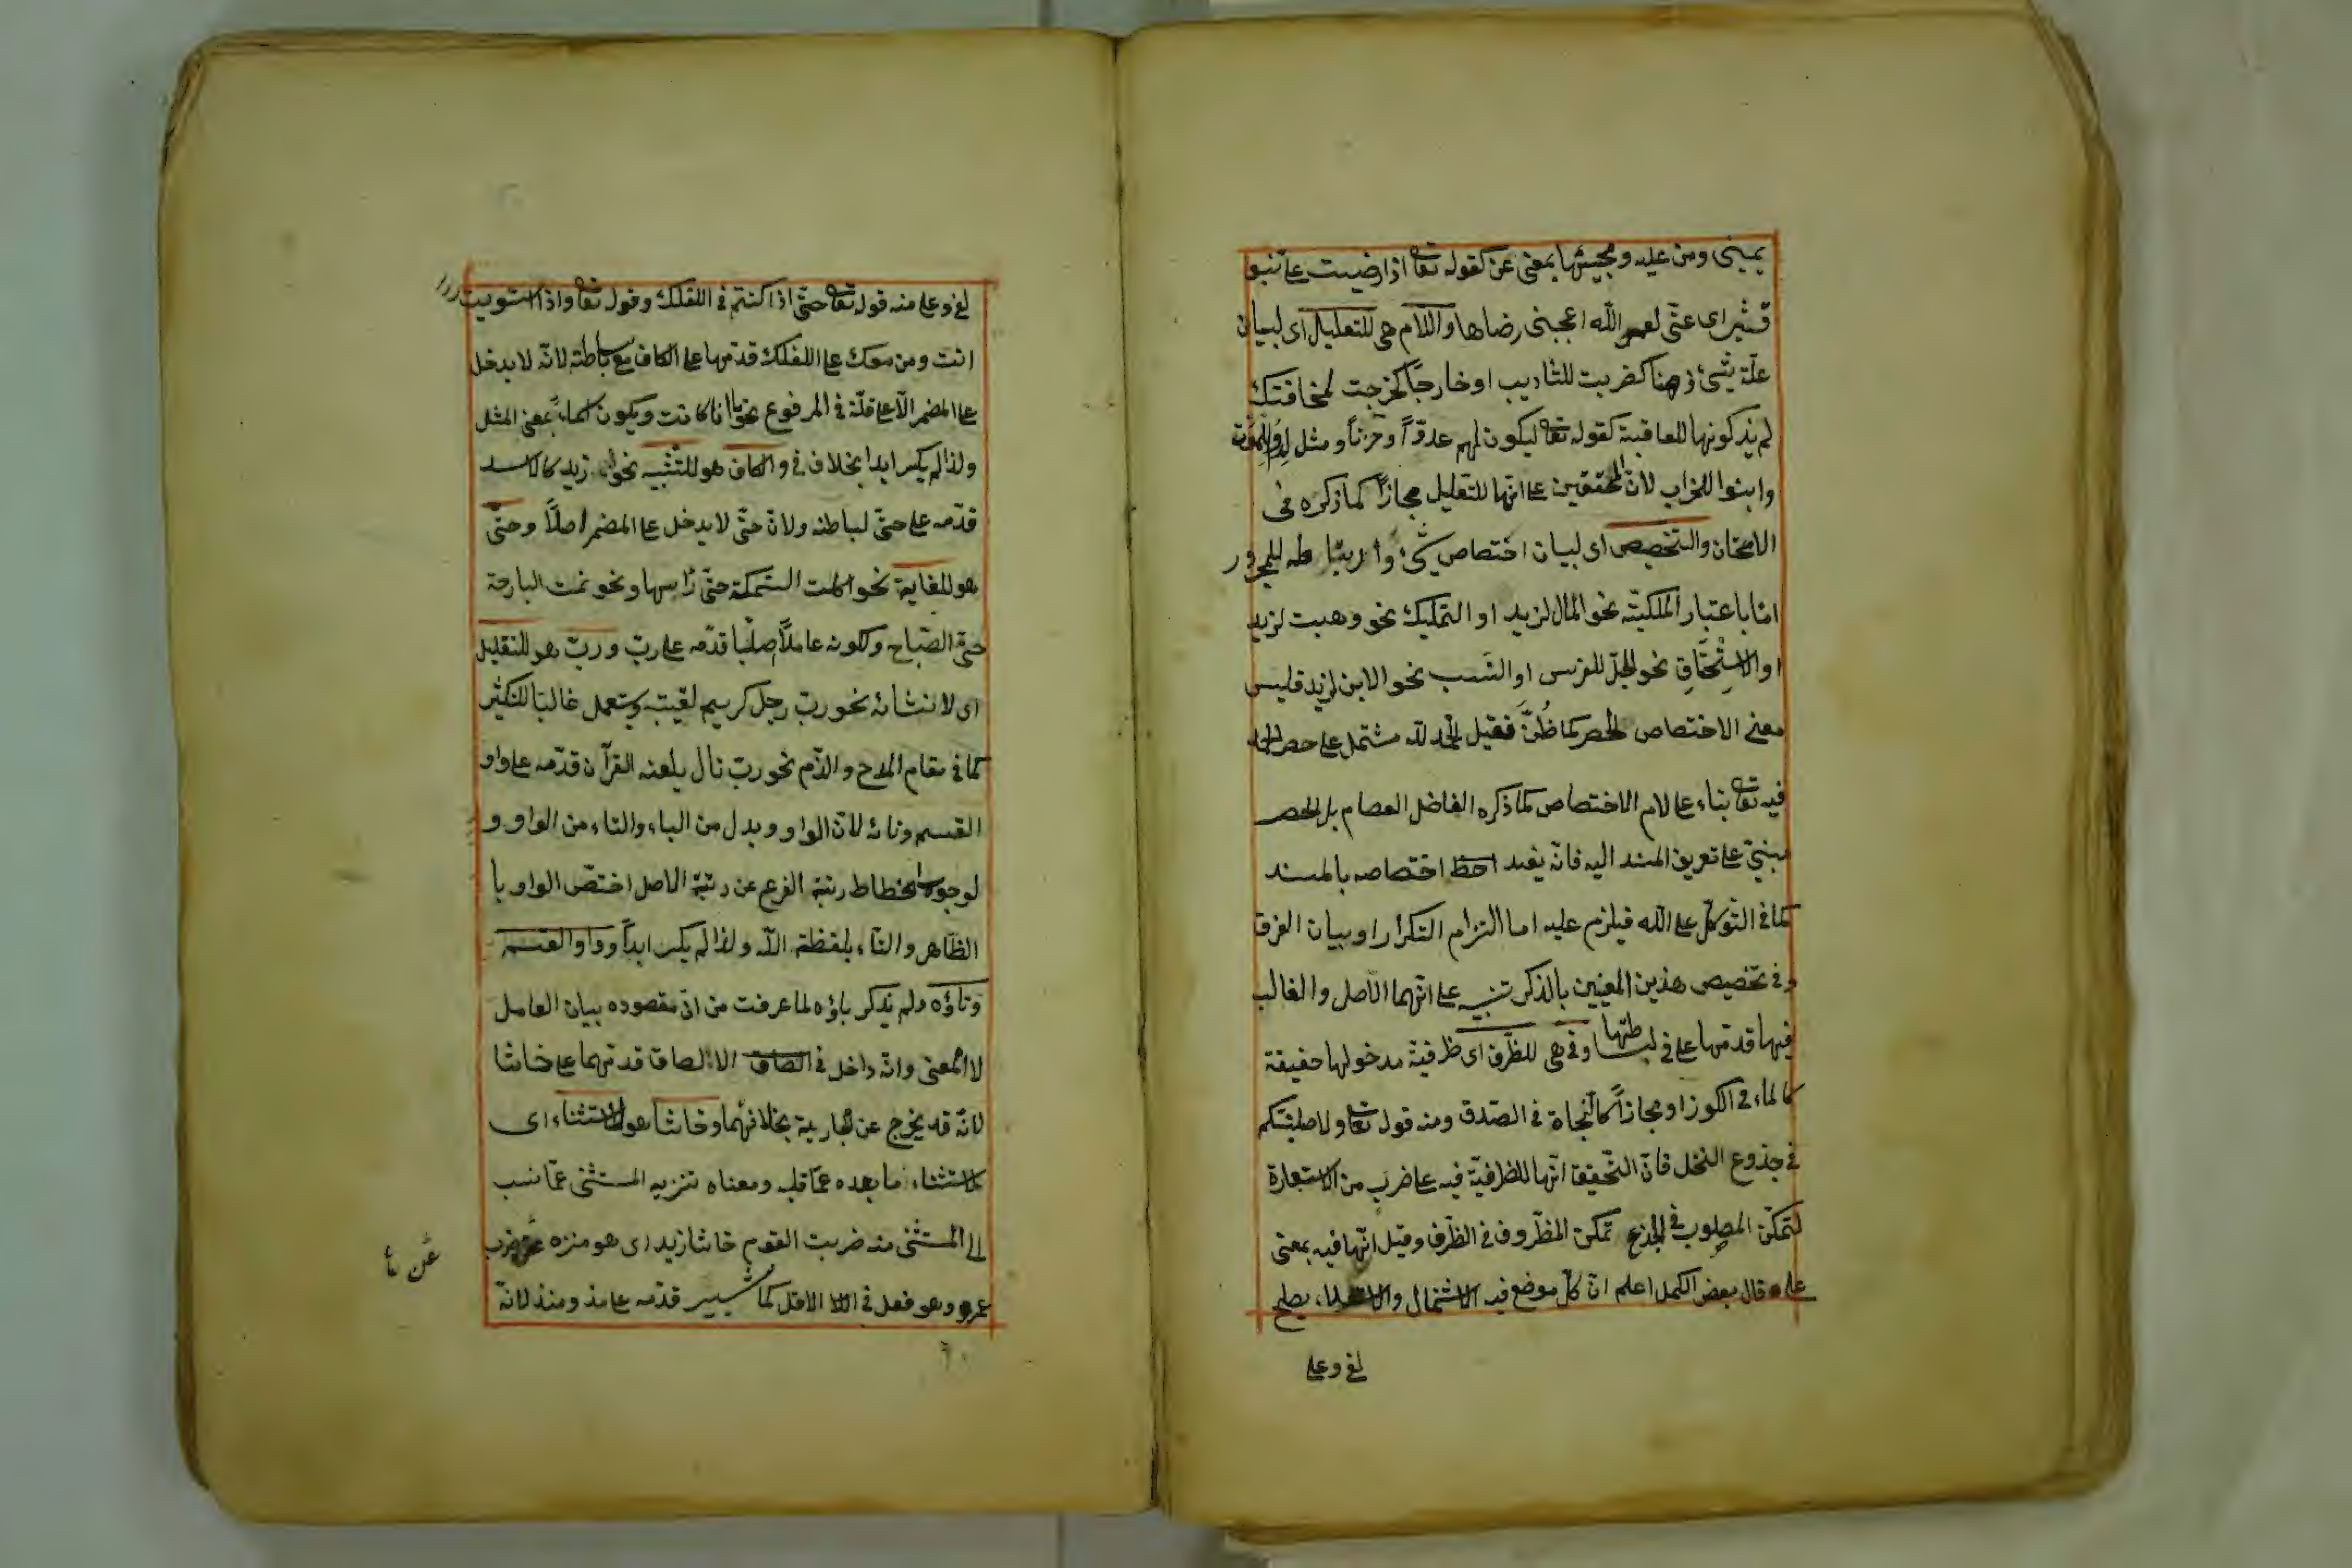 يمينى ومن عليه ومجيئها بمعنى عن كقوله تعا اذا رضيت على بنو
قشير اى عنّى لعمر الله اعجبنى رضاها واللام هى للتعليل اى لبيان
علّة شئ ذهنا كضربت للتأديب او خارجًا كخرجت لمخافتك
لم يذكر كونها للعاقبة كقوله تعا ليكون لهم عدوّاً وحزناً ومثل لدوا للموت
وابنوا للخراب لانّ المحققين على انّها للتعليل مجازاً كما ذكره فى
الامتحان والتخصيص اى لبيان اختصاص شئ وارتباطه للمجرور
امّا باعتبار الملكيّة نحو المال لزيد او التمليك نحو وهبت لزيد
او الاستحقاق نحو الجلّ للفرس او النسب نحو الابن لزيد فليس
معنى الاختصاص الحصر كما ظُنَّ فقيل الحمد لله مشتمل على حصر الحمد
فيه تعا بناء على لام الاختصاص كما ذكره الفاضل العصام بل الحصر
مبنىّ على تعريف المسند اليه فانّه يفيد اختصاصه بالمسند
كما فى التوكّل على الله فيلزم عليه اما التزام التكرار او بيان الفرق
وفى تخصيص هذين المعنيين بالذكر تنبيه على انّهما الاصل والغالب
فيها قدمها على فى لبساطتها وفى هى للظرف اى ظرفية مدخولها حقيقة
كالماء فى الكوز او مجازاً كالنجاة فى الصدق ومنه قوله تعا ولاصلبنّكم
فى جذوع النخل فانّ التحقيق انّها للظرفيّة فيه على ضرب من الاستعارة
لتمكّن المصلوب فى الجذع تمكّن المظروف فى الظرف وقيل انّها فيه بمعنى
على قال بعض الكمل اعلم انّ كلّ موضع فيه الاشتمال والاستعلاء يصلح
لفى وعلى
لفى وعلى منه قوله تعا حتّى اذا كنتم فى الفلك وقوله تعا واذا استويت
انت ومن معك على الفلك قدّمها على الكاف مع بساطته لانّه لا يدخل
على المضمر الّا على قلّة فى المرفوع نحو ما انا كانت ويكون اسماً بمعنى المثل
ولذا لم يكسر ابدا بخلاف فى والكاف هو للتشبيه نحو زيد كالاسد
قدّمه على حتّى لبساطته ولانّ حتّى لا يدخل على المضمر اصلاً وحتّى
هو للغاية نحو اكلت السّمكة حتّى رأسها ونحو نمت البارحة
حتّى الصّباح ولكونه عاملاً اصليًا قدّمه على ربّ وربّ هو للتقليل
اى لانشائه نحو ربّ رجل كريم لقيته ويستعمل غالبًا للتكثير
كما فى مقام المدح والذّم نحو ربّ تال يلعنه القرآن قدّمه على واو
القسم وتائه لانّ الواو بدل من الباء والتاء من الواو و
لوجوب انحطاط رتبة الفرع عن رتبة الاصل اختصّ الواو با
الظّاهر والتاء بلفظة الله ولذا لم يكسر ابداً وواو القسم
وتاؤه ولم يذكر باؤه لما عرفت من انّ مقصوده بيان العامل
لا المعنى وانّه داخل فى الصاق الالصاق قدّمهما على حاشا
لانّه قد يخرج عن الجارية بخلافهما وحاشا هو للاستثناء اى
لاستثناء ما بعده عمّا قبله ومعناه تنزيه المستثنى عمّا نسب
الى المستثنى منه ضربت القوم حاشا زيد اى هو منزه عن ضرب
عمرو وهو فعل فى الاقل كما سيشير قدّمه على مذ ومنذ لانّه
عن